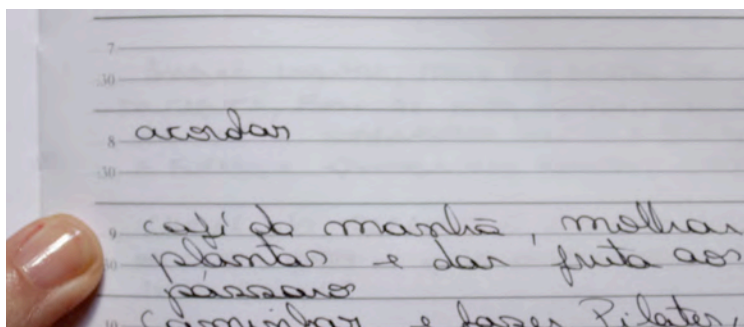 7
30
8 acordar
30
9 café da manhã, molhar
30 plantas e dar fruta aos
pássaros
10 caminhar e fazer Pilates,